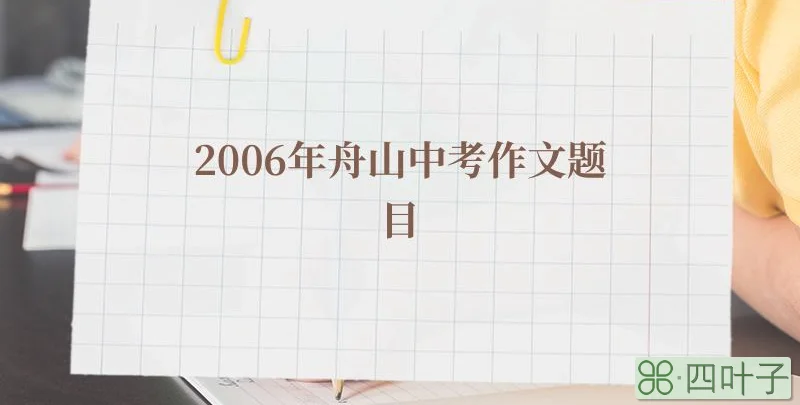 2006年舟山中考作文题
目
四叶子